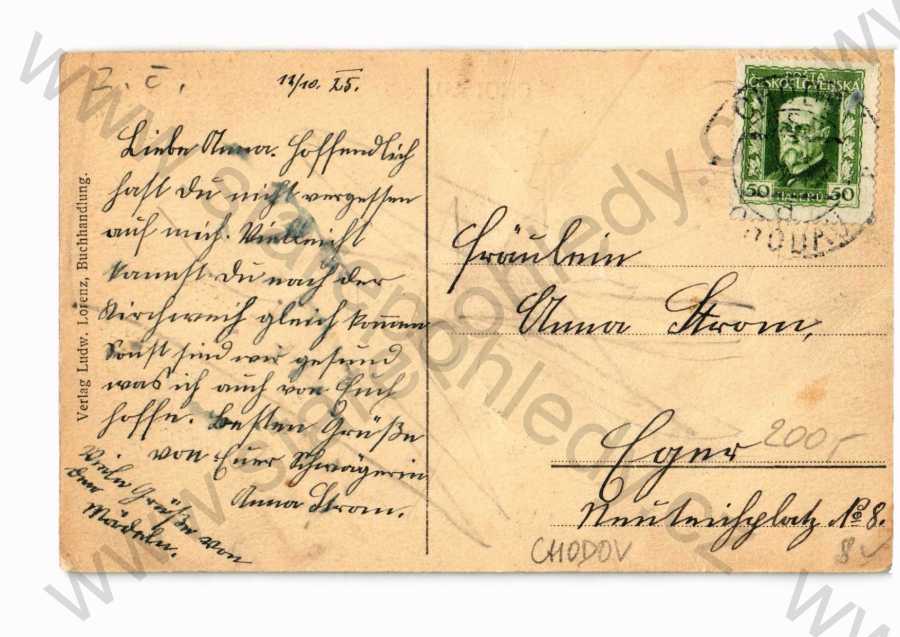 Z. Č.
12/10. 25.
Liebe Anna. Hoffendlich
hast du nicht vergessen
auf mich. Vielleicht
kannst du nach der
Kirchweih gleich kommen
Sonst sind wir gesund
was ich auch von Euch
hoffe. Besten Grüße
von Euer Schwägerin
Anna Strom.
Viele Grüße von
den Mädeln.
Verlag Ludw. Lorenz, Buchhandlung.
POŠTA
ČESKOSLOVENSKÁ
50 50
Fräulein
Anna Strom,
Eger
200,-
Neuteichplatz No 8.
CHODOV
www.starepohledy.cz